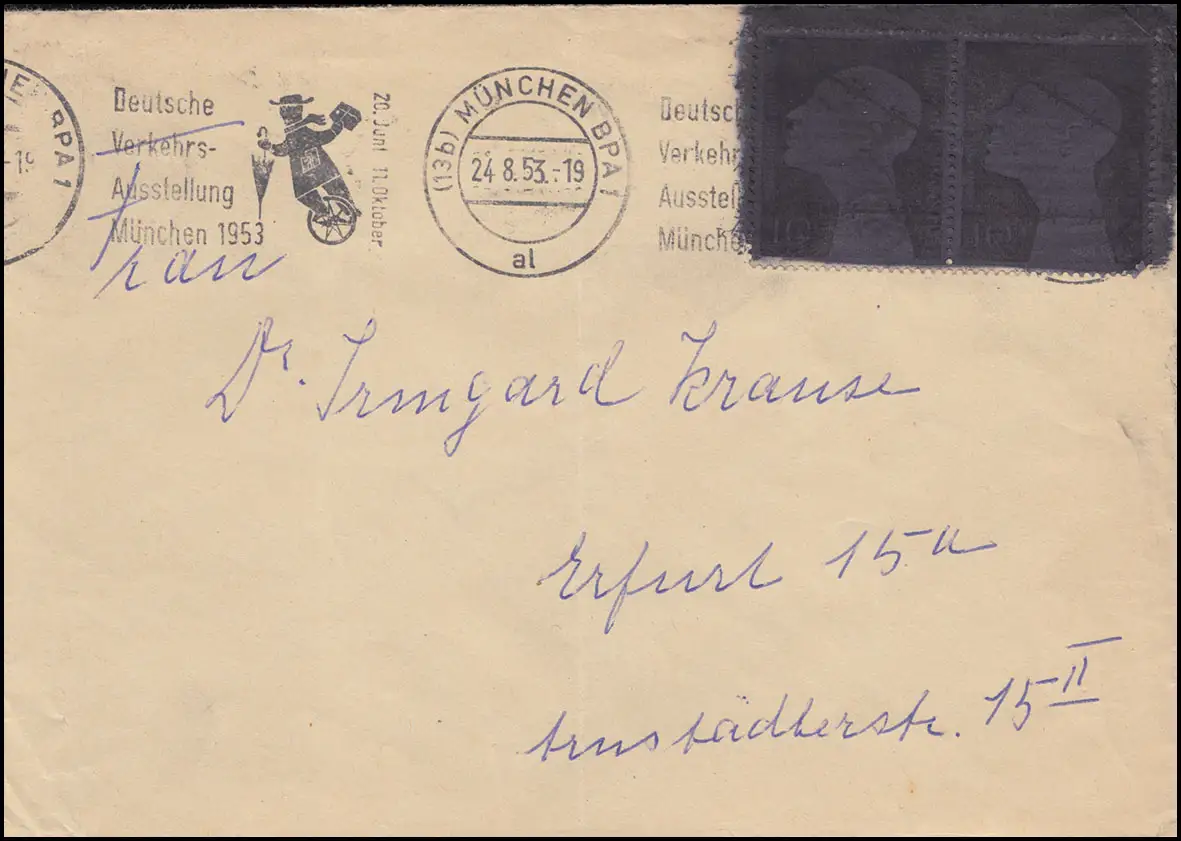 NE BPA 1
-19
Deutsche
Verkehrs-
Ausstellung
München 1953
20. Juni 11. Oktober
(13b) MÜNCHEN BPA 1
24.8.53.-19
al
Deutsc
Verkehr
Ausstel
Münche
Frau
Dr. Irmgard Krause
Erfurt 15a
Arnstädterstr. 15 II